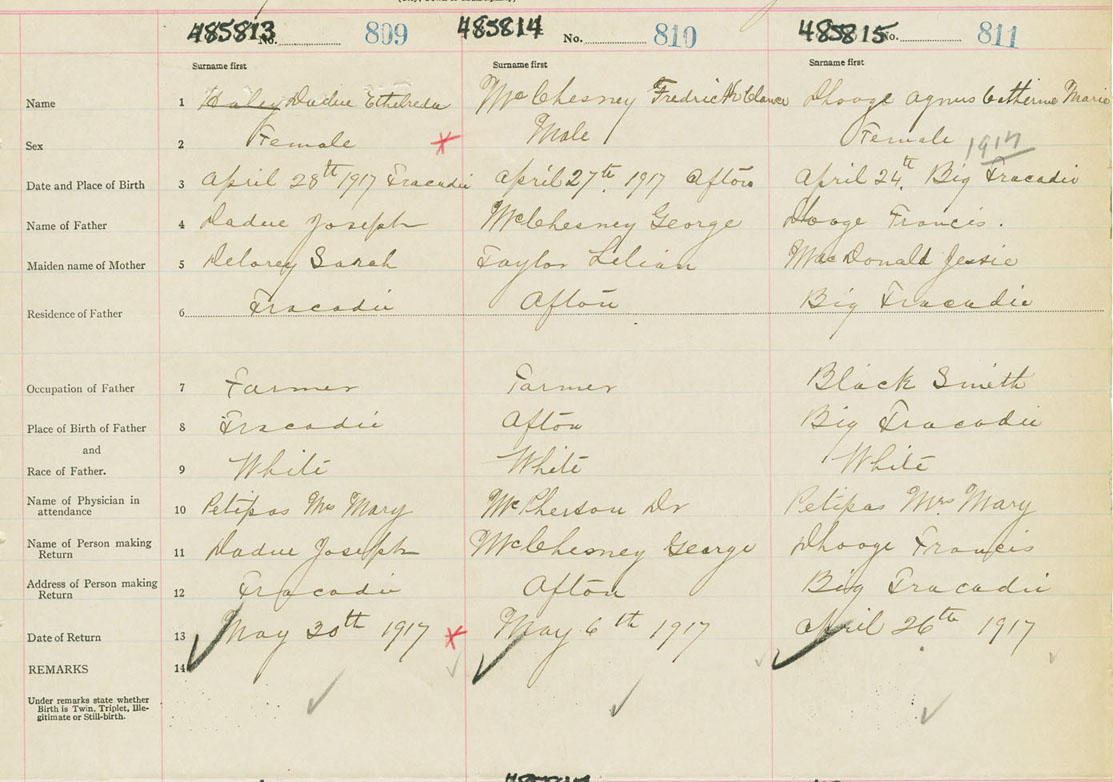 485813 No. 809 485814 No. 810 485815 No. 811
Surname first Surname first Surname first
Name 1 Dadue Ethelreda McChesney Fredric Dhooge Agnus Catherine Marie
Sex 2 Female Male Female 1917
Date and Place of Birth 3 April 28th 1917 Tracadie April 27th 1917 Afton April 24th Big Tracadie
Name of Father 4 Dadue Joseph McChesney George Dhooge Francis.
Maiden name of Mother 5 Delorey Sarah Taylor Lilian MacDonald Jessie
Residence of Father 6 Tracadie Afton Big Tracadie
Occupation of Father 7 Farmer Farmer Black Smith
Place of Birth of Father 8 Tracadie Afton Big Tracadie
and
Race of Father. 9 White White White
Name of Physician in
attendance 10 Petipas Mrs Mary McPherson Dr Petipas Mrs Mary
Name of Person making
Return 11 Dadue Joseph McChesney George Dhooge Francis
Address of Person making
Return 12 Tracadie Afton Big Tracadie
Date of Return 13 May 20th 1917 May 6th 1917 April 26th 1917
REMARKS 14
Under remarks state whether
Birth is Twin, Triplet, Ille-
gitimate or Still-birth.